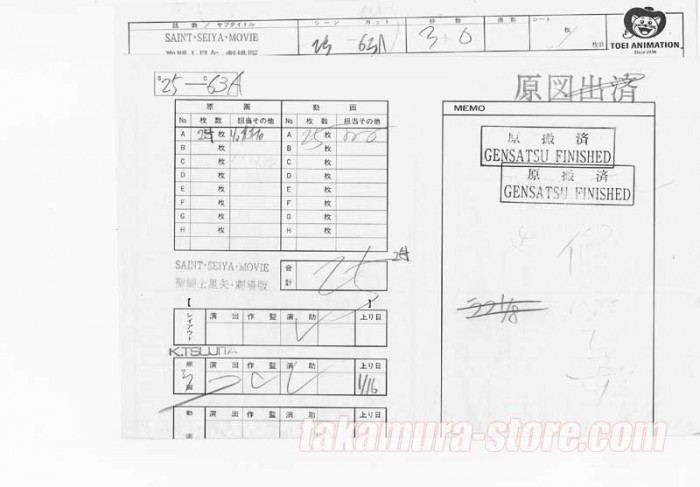 話数/サブタイトル シーン カット 秒数 撮影 シート
SAINT・SEIYA・MOVIE 25 - 63A 3 + 0 枚 枚目
TOEI ANIMATION
Since 1956
S25 - C63A
原図出済
原画 動画
No 枚数 担当その他 No 枚数 担当その他
A 枚 A 25枚
B 枚 B 枚
C 枚 C 枚
D 枚 D 枚
E 枚 E 枚
F 枚 F 枚
G 枚 G 枚
H 枚 H 枚
SAINT・SEIYA・MOVIE
聖闘士星矢・劇場版
合計 25
MEMO
原撮済
GENSATSU FINISHED
原撮済
GENSATSU FINISHED
22 1/8
【 】
レイアウト 演出 作監 演助 上り日
K.TSUJITA
原画 演出 作監 演助 上り日
1/16
動 演出 作監 演助 上り日
takamura-store.com